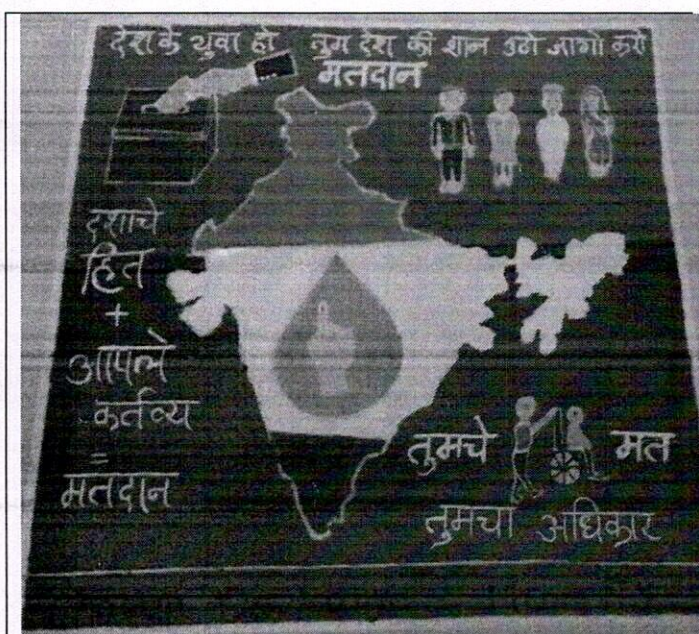 देश के युवा हो तुम देश की शान उठो जागो करो
मतदान
देशाचे
हित
+
आपले
कर्तव्य
=
मतदान
तुमचे मत
तुमचा अधिकार